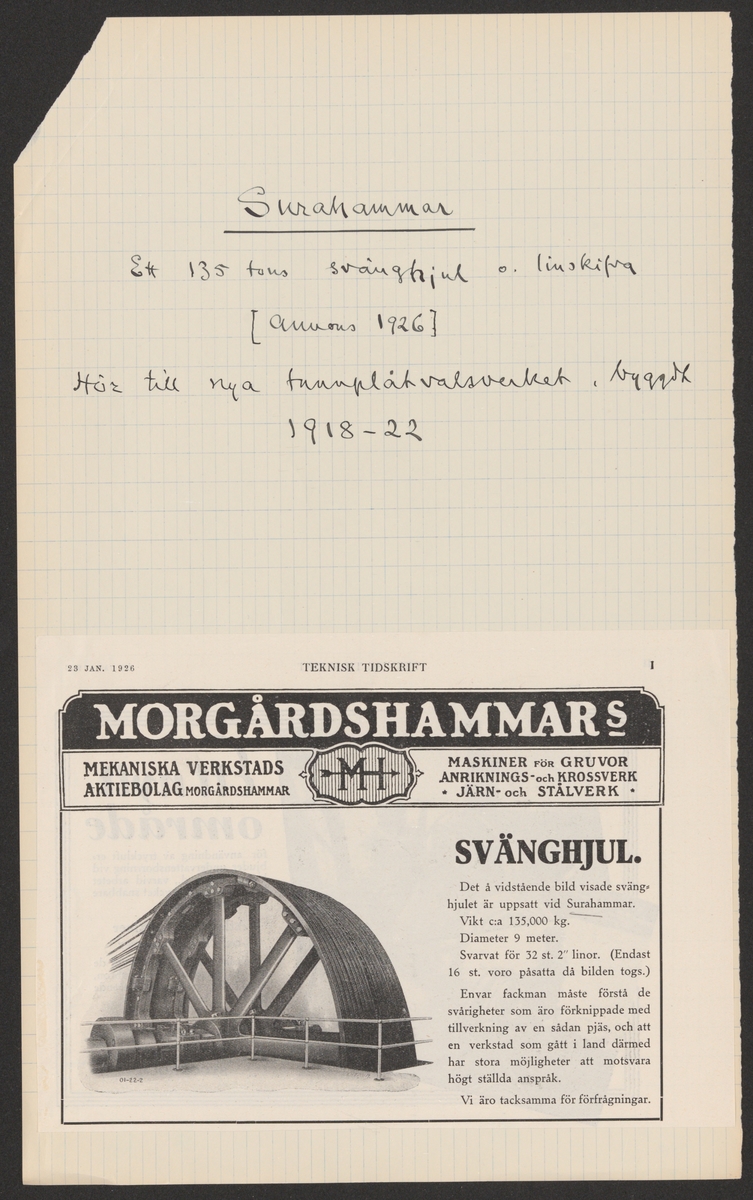 Surahammar
Ett 135 tons svänghjul o. linskifva
[annons 1926]
Hör till nya tunnplåtvalsverket, byggdt
1918-22
23 JAN. 1926 TEKNISK TIDSKRIFT I
MORGÅRDSHAMMARS
MEKANISKA VERKSTADS
AKTIEBOLAG MORGÅRDSHAMMAR
MH
MASKINER FÖR GRUVOR
ANRIKNINGS- och KROSSVERK
• JÄRN- och STÅLVERK •
SVÄNGHJUL.
Det å vidstående bild visade sväng-
hjulet är uppsatt vid Surahammar.
Vikt c:a 135,000 kg.
Diameter 9 meter.
Svarvat för 32 st. 2" linor. (Endast
16 st. voro påsatta då bilden togs.)
Envar fackman måste förstå de
svårigheter som äro förknippade med
tillverkning av en sådan pjäs, och att
en verkstad som gått i land därmed
har stora möjligheter att motsvara
högt ställda anspråk.
Vi äro tacksamma för förfrågningar.
01-22-2
område